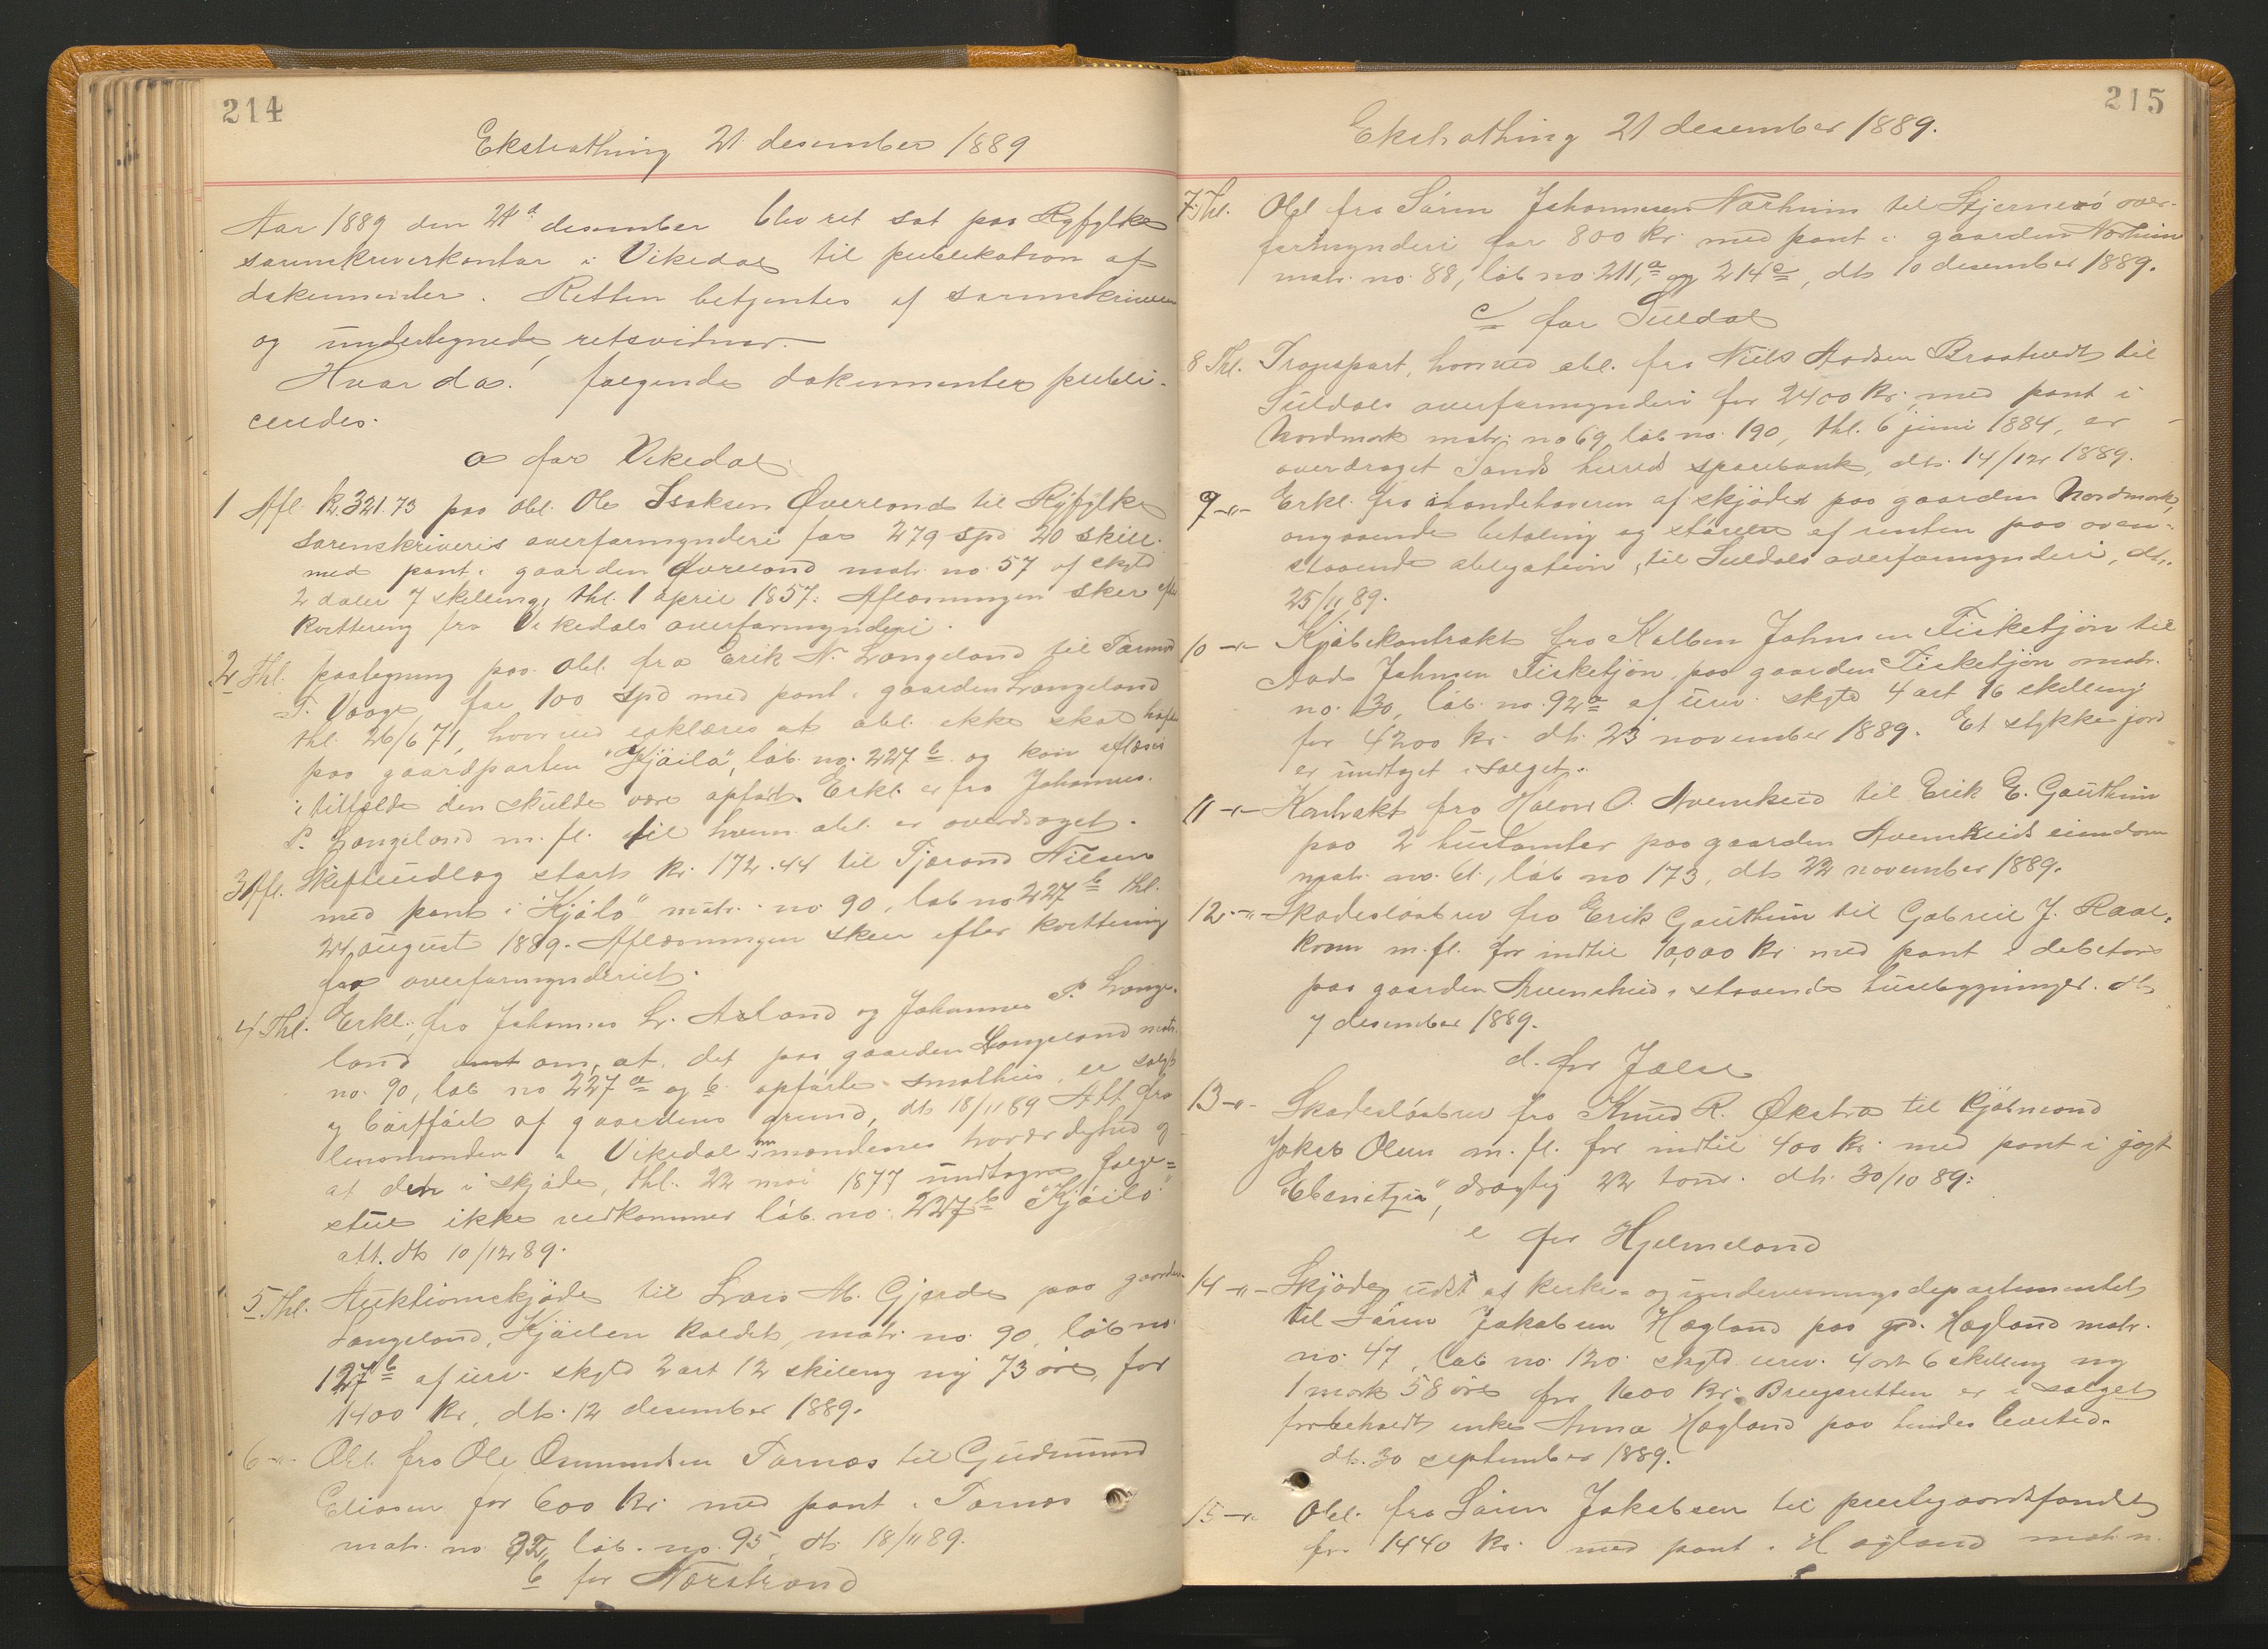 214
Ekstrathing 21 desember 1889
Aar 1889 den 21de desember blev ret sat paa Ryfylke
sorenskriverkontor i Vikedal til publikation af
dokumenter. Retten betjentes af sorenskriveren
og undertegnede retsvidner.
Hvor da! følgende dokumenter publi-
ceredes.
a for Vikedal
1 Afl. kr. 321.73 paa obl. Ole Isaksen Øverland til Ryfylke
sorenskriveris overformynderi for 279 spd 20 skill.
med pant i gaarden Øverland matr. no. 57 af skyld
2 daler 7 skilling, thl. 1 april 1857. Aflæsningen sker efter
kvittering fra Vikedals overformynderi.
2 Thl. paategning paa obl. fra Erik N. Langeland til Tormod
T. Vaage for 100 spd med pant i gaarden Langeland
thl. 26/6 71, hvorved erklæres at obl. ikke skal hefte
paa gaardparten "Kjäila", löb. no. 227 b og kan aflæses
i tilfælde den skulde være opført. Erkl. er fra Johannes
P. Langeland m. fl. til hvem obl. er overdraget.
3 Afl. Skifteudlæg stort kr. 172.44 til Tjerand Nilsen
med pant i "Kjäila" matr. no. 90, löb no 227 b thl.
24 august 1889. Aflæsningen sker efter kvittering
fra overformynderiet.
4 Thl. Erkl. fra Johannes L. Aaland og Johannes P. Lange-
land om, at det paa gaarden Langeland matr.
no. 90, löb no 227 a og b opførte smalhus er solgt
og bortført af gaardens grund, dt. 18/11 89 Att. fra
lensmanden i Vikedal om mændenes troværdighed og
at den i skjöde, thl. 22 mai 1877 undtagne følge-
stue ikke vedkommer löb. no. 227 b "Kjäila"
att. dt. 10/12 89.
5 Thl. Auktionsskjöde til Lars M. Gjerde paa gaarden
Langeland, Kjäilen kaldet, matr. no. 90, löb no.
127 b af urev. skyld 2 ort 12 skilling ny 73 öre, for
1400 kr, dt. 12 desember 1889.
6 -"- Obl. fra Ole Osmundsen Tornæs til Gudmund
Eliasen for 600 kr. med pant i Tornæs
matr. no. 32, löb. no. 95, dt. 18/11 89.
b for Nærstrand
215
Ekstrathing 21 desember 1889.
7 Thl. Obl fra Sören Johannesen Nærheim til Stjernerö over-
formynderi for 800 kr. med pant i gaarden Nærheim
matr. no. 88, löb no. 211 a og 214 c, dt. 10 desember 1889.
c/ for Suldal
8 Thl. Transport, hvorved obl. fra Niels Aadsen Braatvedt til
Suldals overformynderi for 2400 kr. med pant i
Nordmork matr. no 69, löb no. 190, thl. 6 juni 1884, er
overdraget Sands herreds sparebank, dt. 14/12 1889.
9 -"- Erkl. fra ihændehaveren af skjödet paa gaarden Nordmork,
angaaende betaling og størelse af renten paa oven-
staaende obligation, til Suldals overformynderi, dt.
25/11 89.
10 -"- Kjöbekontrakt fra Kolben Johnsen Fisketjön til
Aad Johnsen Fisketjön paa gaarden Fisketjön matr.
no. 30, löb. no. 92 a af urev. skyld 4 ort 16 skilling
for 4200 kr. dt. 23 november 1889. Et stykke jord
er undtaget i salget.
11 -"- Kontrakt fra Halvor O. Avenskeid til Erik E. Gauthun
paa 2 hustomter paa gaarden Avenskeids eiendom
matr. no. 61, löb no 173, dt 22 november 1889.
12 -"- Skadeslösbrev fra Erik Gauthun til Gabriel J. Raal-
kvam m. fl. for indtil 10,000 kr. med pant i debitors
paa gaarden Avenskeid staaende husebygninger. dt
7 desember 1889.
d. for Jælse
13 -"- Skadeslösbrev fra Knud R. Økstra til kjöbmand
Jakob Olsen m. fl. for indtil 400 kr. med pant i jagt
"Ebenitzer", drægtig 22 tons. dt. 30/10 89.
e for Hjelmeland
14 -"- Skjöde, udst. af kirke- og undervisningsdepartementet
til Sören Jakobsen Hægland paa grd. Hægland matr.
no. 47, löb no. 120 skyld urev. 4 ort 6 skilling ny
1 mark 58 öre for 1600 kr. Brugsretten er i salget
forbeholdt enke Anna Hægland paa hendes levetid.
dt. 30 september 1889.
15 -"- Obl. fra Sören Jakobsen til præstegaardsfondet
for 1440 kr. med pant i Hægland matr. n.